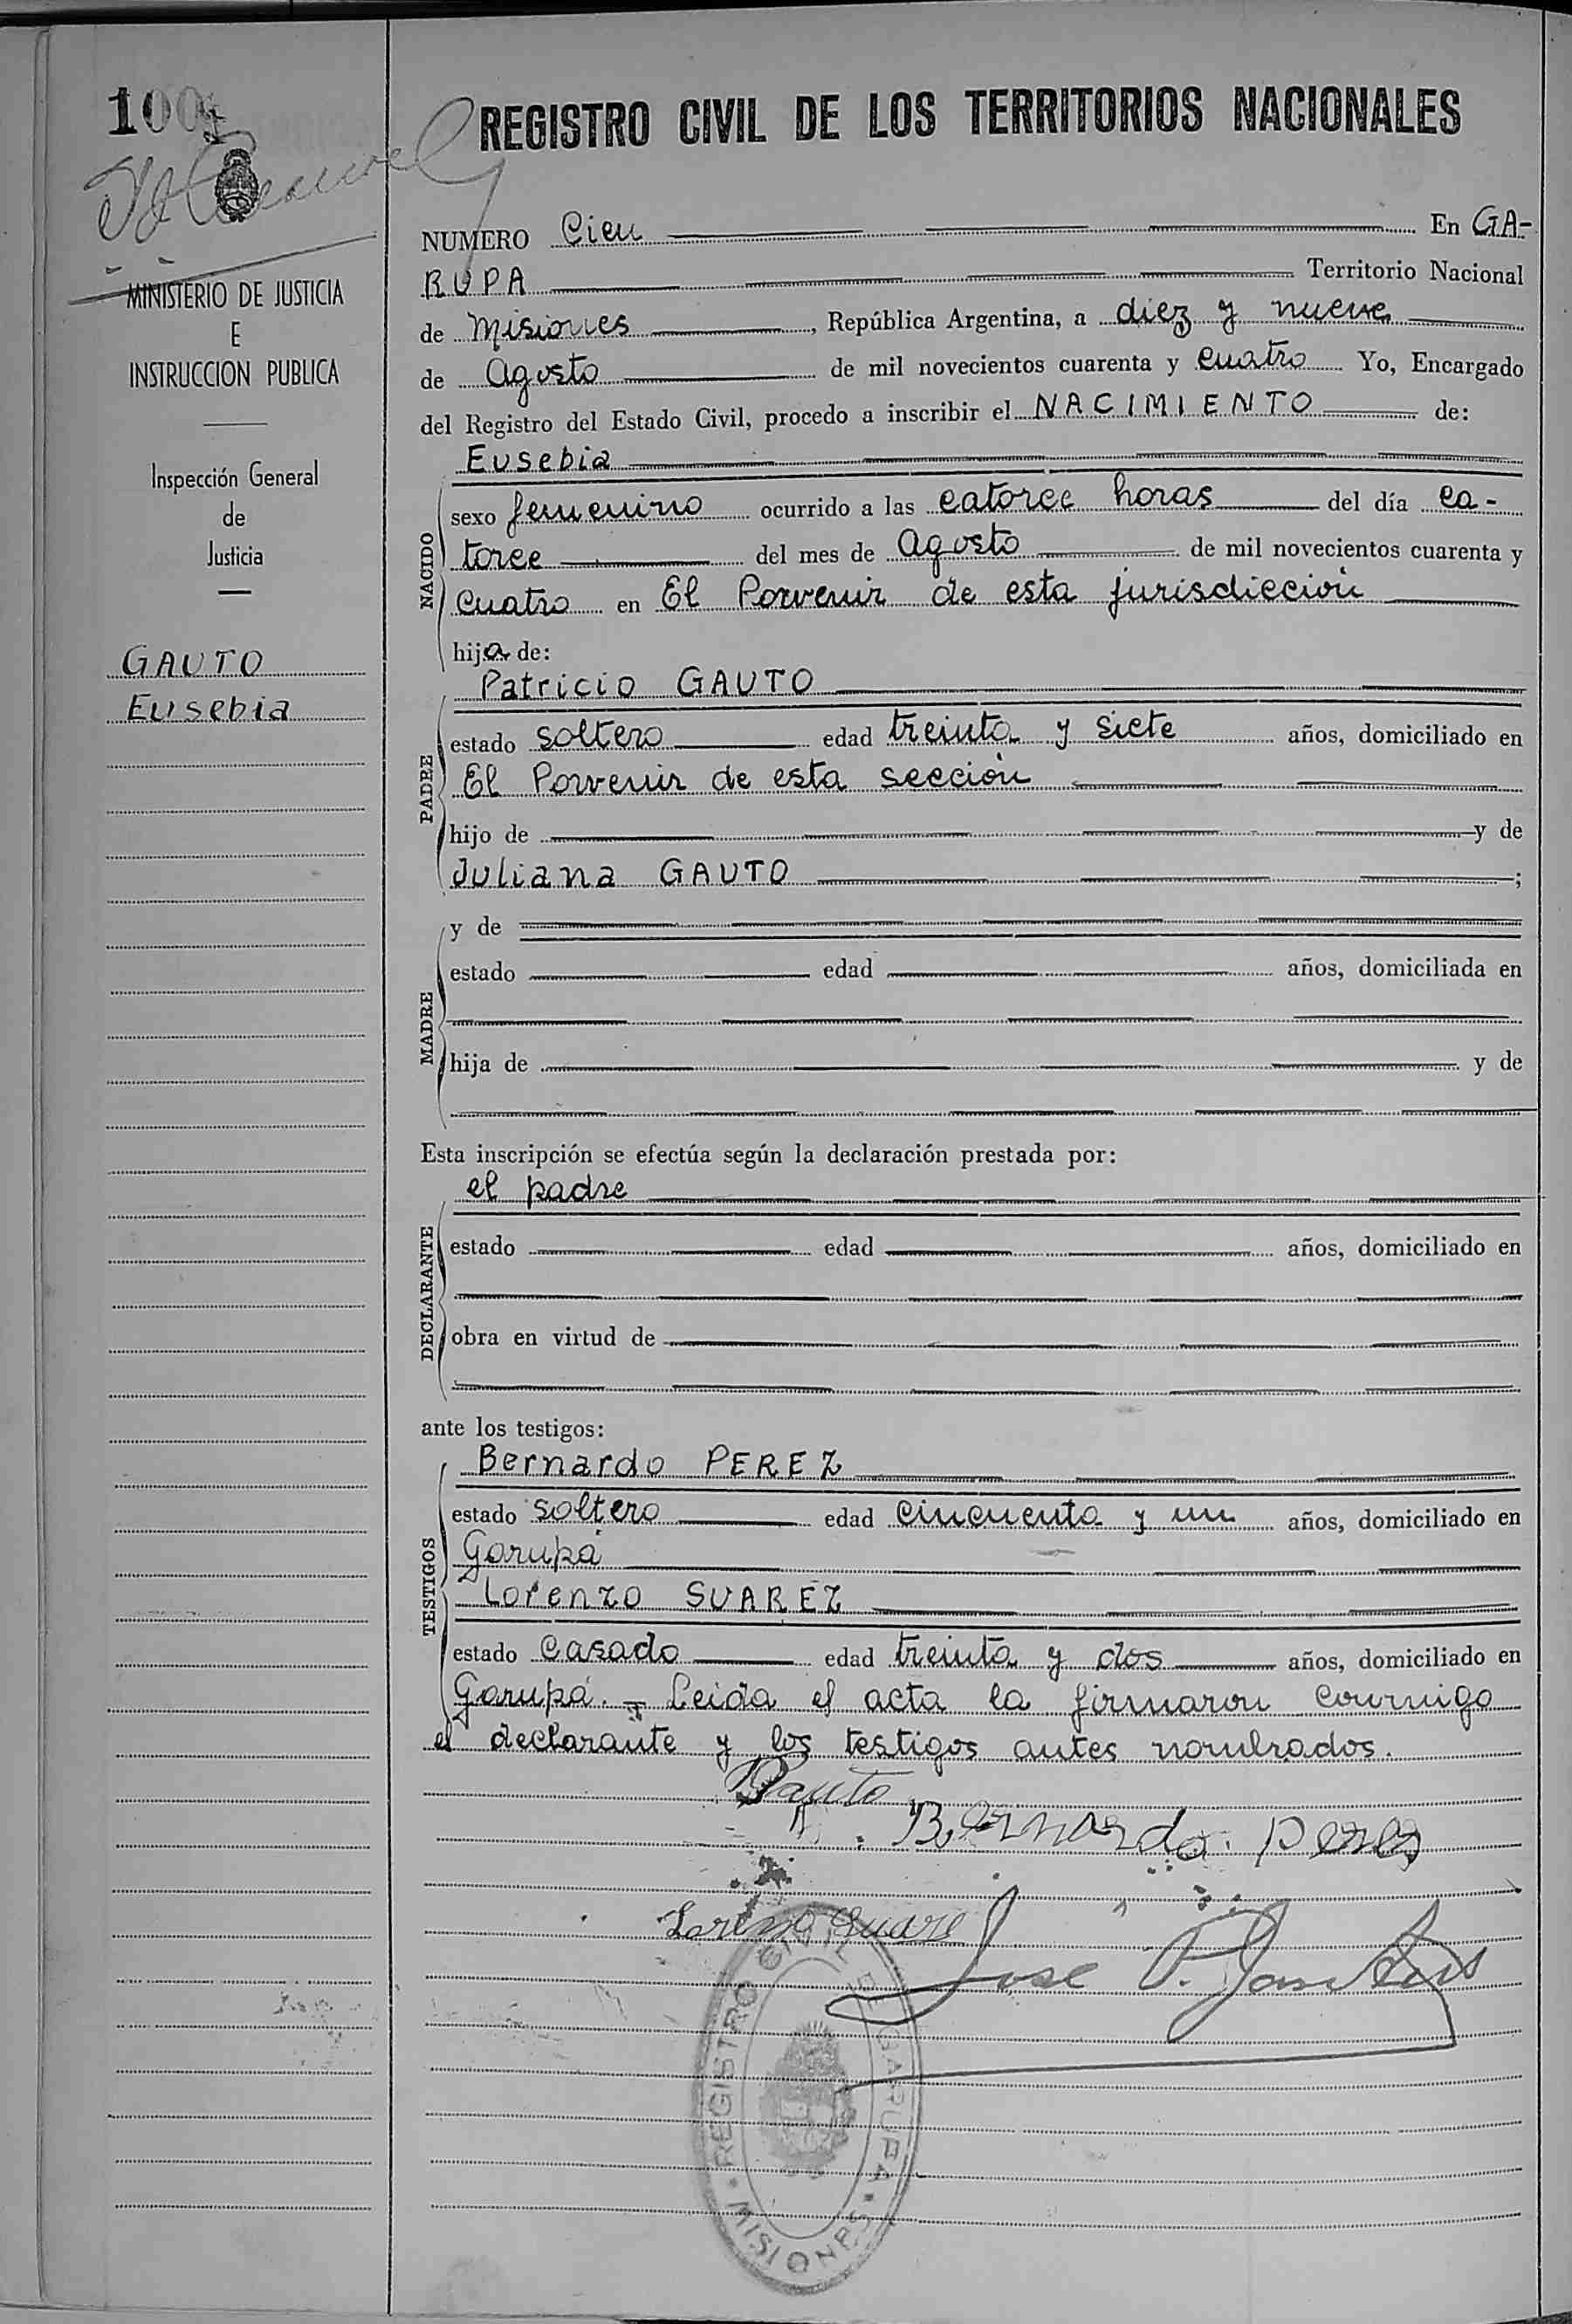 100
REGISTRO CIVIL DE LOS TERRITORIOS NACIONALES
MINISTERIO DE JUSTICIA
E
INSTRUCCION PUBLICA
Inspección General
de
Justicia
GAUTO
Eusebia
NUMERO Cien En GA-
RUPA Territorio Nacional
de Misiones, República Argentina, a diez y nueve
de Agosto de mil novecientos cuarenta y cuatro Yo, Encargado
del Registro del Estado Civil, procedo a inscribir el NACIMIENTO de:
Eusebia
NACIDO
sexo femenino ocurrido a las catorce horas del día ca-
torce del mes de Agosto de mil novecientos cuarenta y
cuatro en El Porvenir de esta jurisdicción
hija de:
Patricio GAUTO
PADRE
estado soltero edad treinta y siete años, domiciliado en
El Porvenir de esta sección
hijo de y de
Juliana GAUTO ;
MADRE
y de
estado edad años, domiciliada en
hija de y de
Esta inscripción se efectúa según la declaración prestada por:
el padre
DECLARANTE
estado edad años, domiciliado en
obra en virtud de
ante los testigos:
TESTIGOS
Bernardo PEREZ
estado soltero edad cincuenta y un años, domiciliado en
Garupá
Lorenzo SUAREZ
estado casado edad treinta y dos años, domiciliado en
Garupá.= Leida el acta la firmaron conmigo
el declarante y los testigos antes nombrados.
Bernardo Perez
Lorenzo Suare
Jose P.
REGISTRO CIVIL DE GARUPA
MISIONES